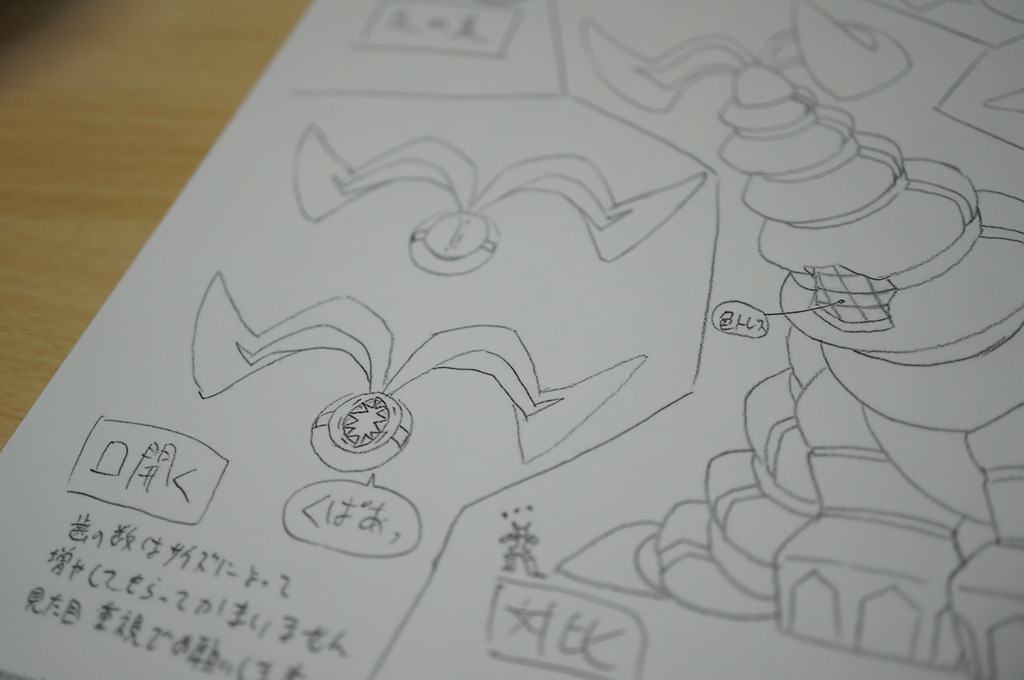 色トレス
口開く
くぱあッ
歯の数はサイズによって
増やしてもらってかまいません
見た目重視でお願いします
対比